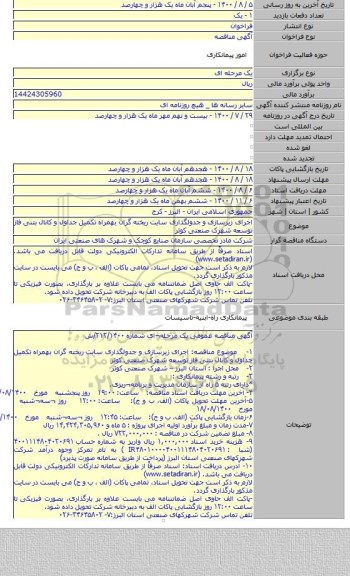 تاریخ آخرین به روز رسانی ۵ / ۸ / ۱۴۰۰ - پنجم آبان ماه یک هزار و چهارصد
تعداد دفعات بازدید ۱ - یک
نوع انتشار فراخوان
نوع فراخوان آگهی مناقصه
حوزه فعالیت فراخوان امور پیمانکاری
نوع برگزاری یک مرحله ای
واحد پولی برآورد مالی ریال
برآورد مالی 14424305960
نام روزنامه منتشر کننده آگهی سایر رسانه ها _ هیچ روزنامه ای
تاریخ درج آگهی در روزنامه ۲۹ / ۷ / ۱۴۰۰ - بیست و نهم مهر ماه یک هزار و چهارصد
بین المللی است
احتمال تمدید مهلت دارد
لغو شده
تجدید شده
تاریخ بازگشایی پاکات ۱۸ / ۸ / ۱۴۰۰ - هجدهم آبان ماه یک هزار و چهارصد
مهلت ارسال پیشنهاد ۱۸ / ۸ / ۱۴۰۰ - هجدهم آبان ماه یک هزار و چهارصد
مهلت دریافت اسناد ۶ / ۸ / ۱۴۰۰ - ششم آبان ماه یک هزار و چهارصد
تاریخ اعتبار پیشنهاد ۶ / ۱۱ / ۱۴۰۰ - ششم بهمن ماه یک هزار و چهارصد
کشور | استان | شهر جمهوری اسلامی ایران - البرز - کرج
موضوع اجرای زیرسازی و جدولگذاری سایت ریخته گران بهمراه تکمیل جداول و کانال بتنی فاز
توسعه شهرک صنعتی کوثر
دستگاه مناقصه گزار شرکت مادر تخصصی سازمان صنایع کوچک و شهرک های صنعتی ایران
محل دریافت اسناد اسناد صرفا از طریق سامانه تدارکات الکترونیکی دولت قابل دریافت می باشد.
(www.setadiran.ir)
لازم به ذکر است جهت تحویل اسناد، تمامی پاکات (الف ، ب و ج) می بایست در سایت
مذکور بارگذاری گردد.
-پاکت الف حاوی اصل ضمانتنامه می بایست علاوه بر بارگذاری، بصورت فیزیکی تا
ساعت ۱۲:۰۰ روز بازگشایی پاکات الف به دبیرخانه شرکت تحویل داده شود.
تلفن تماس شرکت شهرکهای صنعتی استان البرز:۷-۳۴۶۴۵۸۰۲-۰۲۶
طبقه بندی موضوعی پیمانکاری راه-ابنیه-تاسیسات
توضیحات آگهی مناقصه عمومی یک مرحله¬ای شماره ۲۱۲/۱۴۰۰/ش
۱- موضوع مناقصه: اجرای زیرسازی و جدولگذاری سایت ریخته گران بهمراه تکمیل
جداول و کانال بتنی فاز توسعه شهرک صنعتی کوثر
۲- محل اجرا : استان البرز – شهرک صنعتی کوثر
۳- رتبه و رشته پیمانکاری :
-دارای رتبه ۵ راه از سازمان مدیریت و برنامه¬ریزی
۵-آخرین مهلت تحویل پاکات (الف، ب و ج): ساعت: ۱۲:۰۰ روز ¬سه¬شنبه مورخ
۱۸/۰۸/۱۴۰۰
۶-زمان بازگشایی پاکت (الف، ب و ج): ساعت: ۱۲:۴۵ روز ¬سه¬شنبه مورخ
۷-مدت زمان و مبلغ برآورد اولیه اجرای پروژه : ۵ ماه و ۱۴,۴۲۴,۳۰۵,۹۶۰ ریال
۸- مبلغ تضمین شرکت در مناقصه : ۷۲۲,۰۰۰,۰۰۰ ریال .
شهرکهای صنعتی استان البرز (پرداخت از طریق سامانه صورت پذیرد)
۱۰- آدرس دریافت اسناد: اسناد صرفا از طریق سامانه تدارکات الکترونیکی دولت قابل
دریافت می باشد. (www.setadiran.ir)
لازم به ذکر است جهت تحویل اسناد، تمامی پاکات (الف ، ب و ج) می بایست در سایت
مذکور بارگذاری گردد.
-پاکت الف حاوی اصل ضمانتنامه می بایست علاوه بر بارگذاری، بصورت فیزیکی تا
ساعت ۱۲:۰۰ روز بازگشایی پاکات الف به دبیرخانه شرکت تحویل داده شود.
تلفن تماس شرکت شهرکهای صنعتی استان البرز:۷-۳۴۶۴۵۸۰۲-۰۲۶